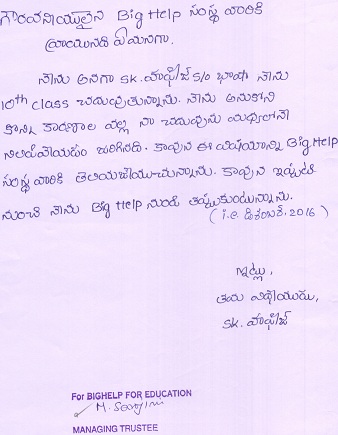 గౌరవనీయులైన Big Help సంస్థ వారికి
వ్రాయునది ఏమనగా.
నేను అనగా SK. హఫీజ్ S/o భాషా నేను
10th class చదువుతున్నాను. నేను అనుకోని
కొన్ని కారణాల వల్ల నా చదువును మధ్యలోనే
నిలిపివేయడం జరిగినది. కావున ఈ విషయాన్ని Big Help
సంస్థ వారికి తెలియజేయుచున్నాను. కావున ఇప్పటి
నుంచి నేను Big Help నుండి తప్పుకుంటున్నాను.
(i.e డిశంబర్. 2016)
ఇట్లు,
తమ విధేయుడు,
SK. హఫీజ్
For BIGHELP FOR EDUCATION
MANAGING TRUSTEE